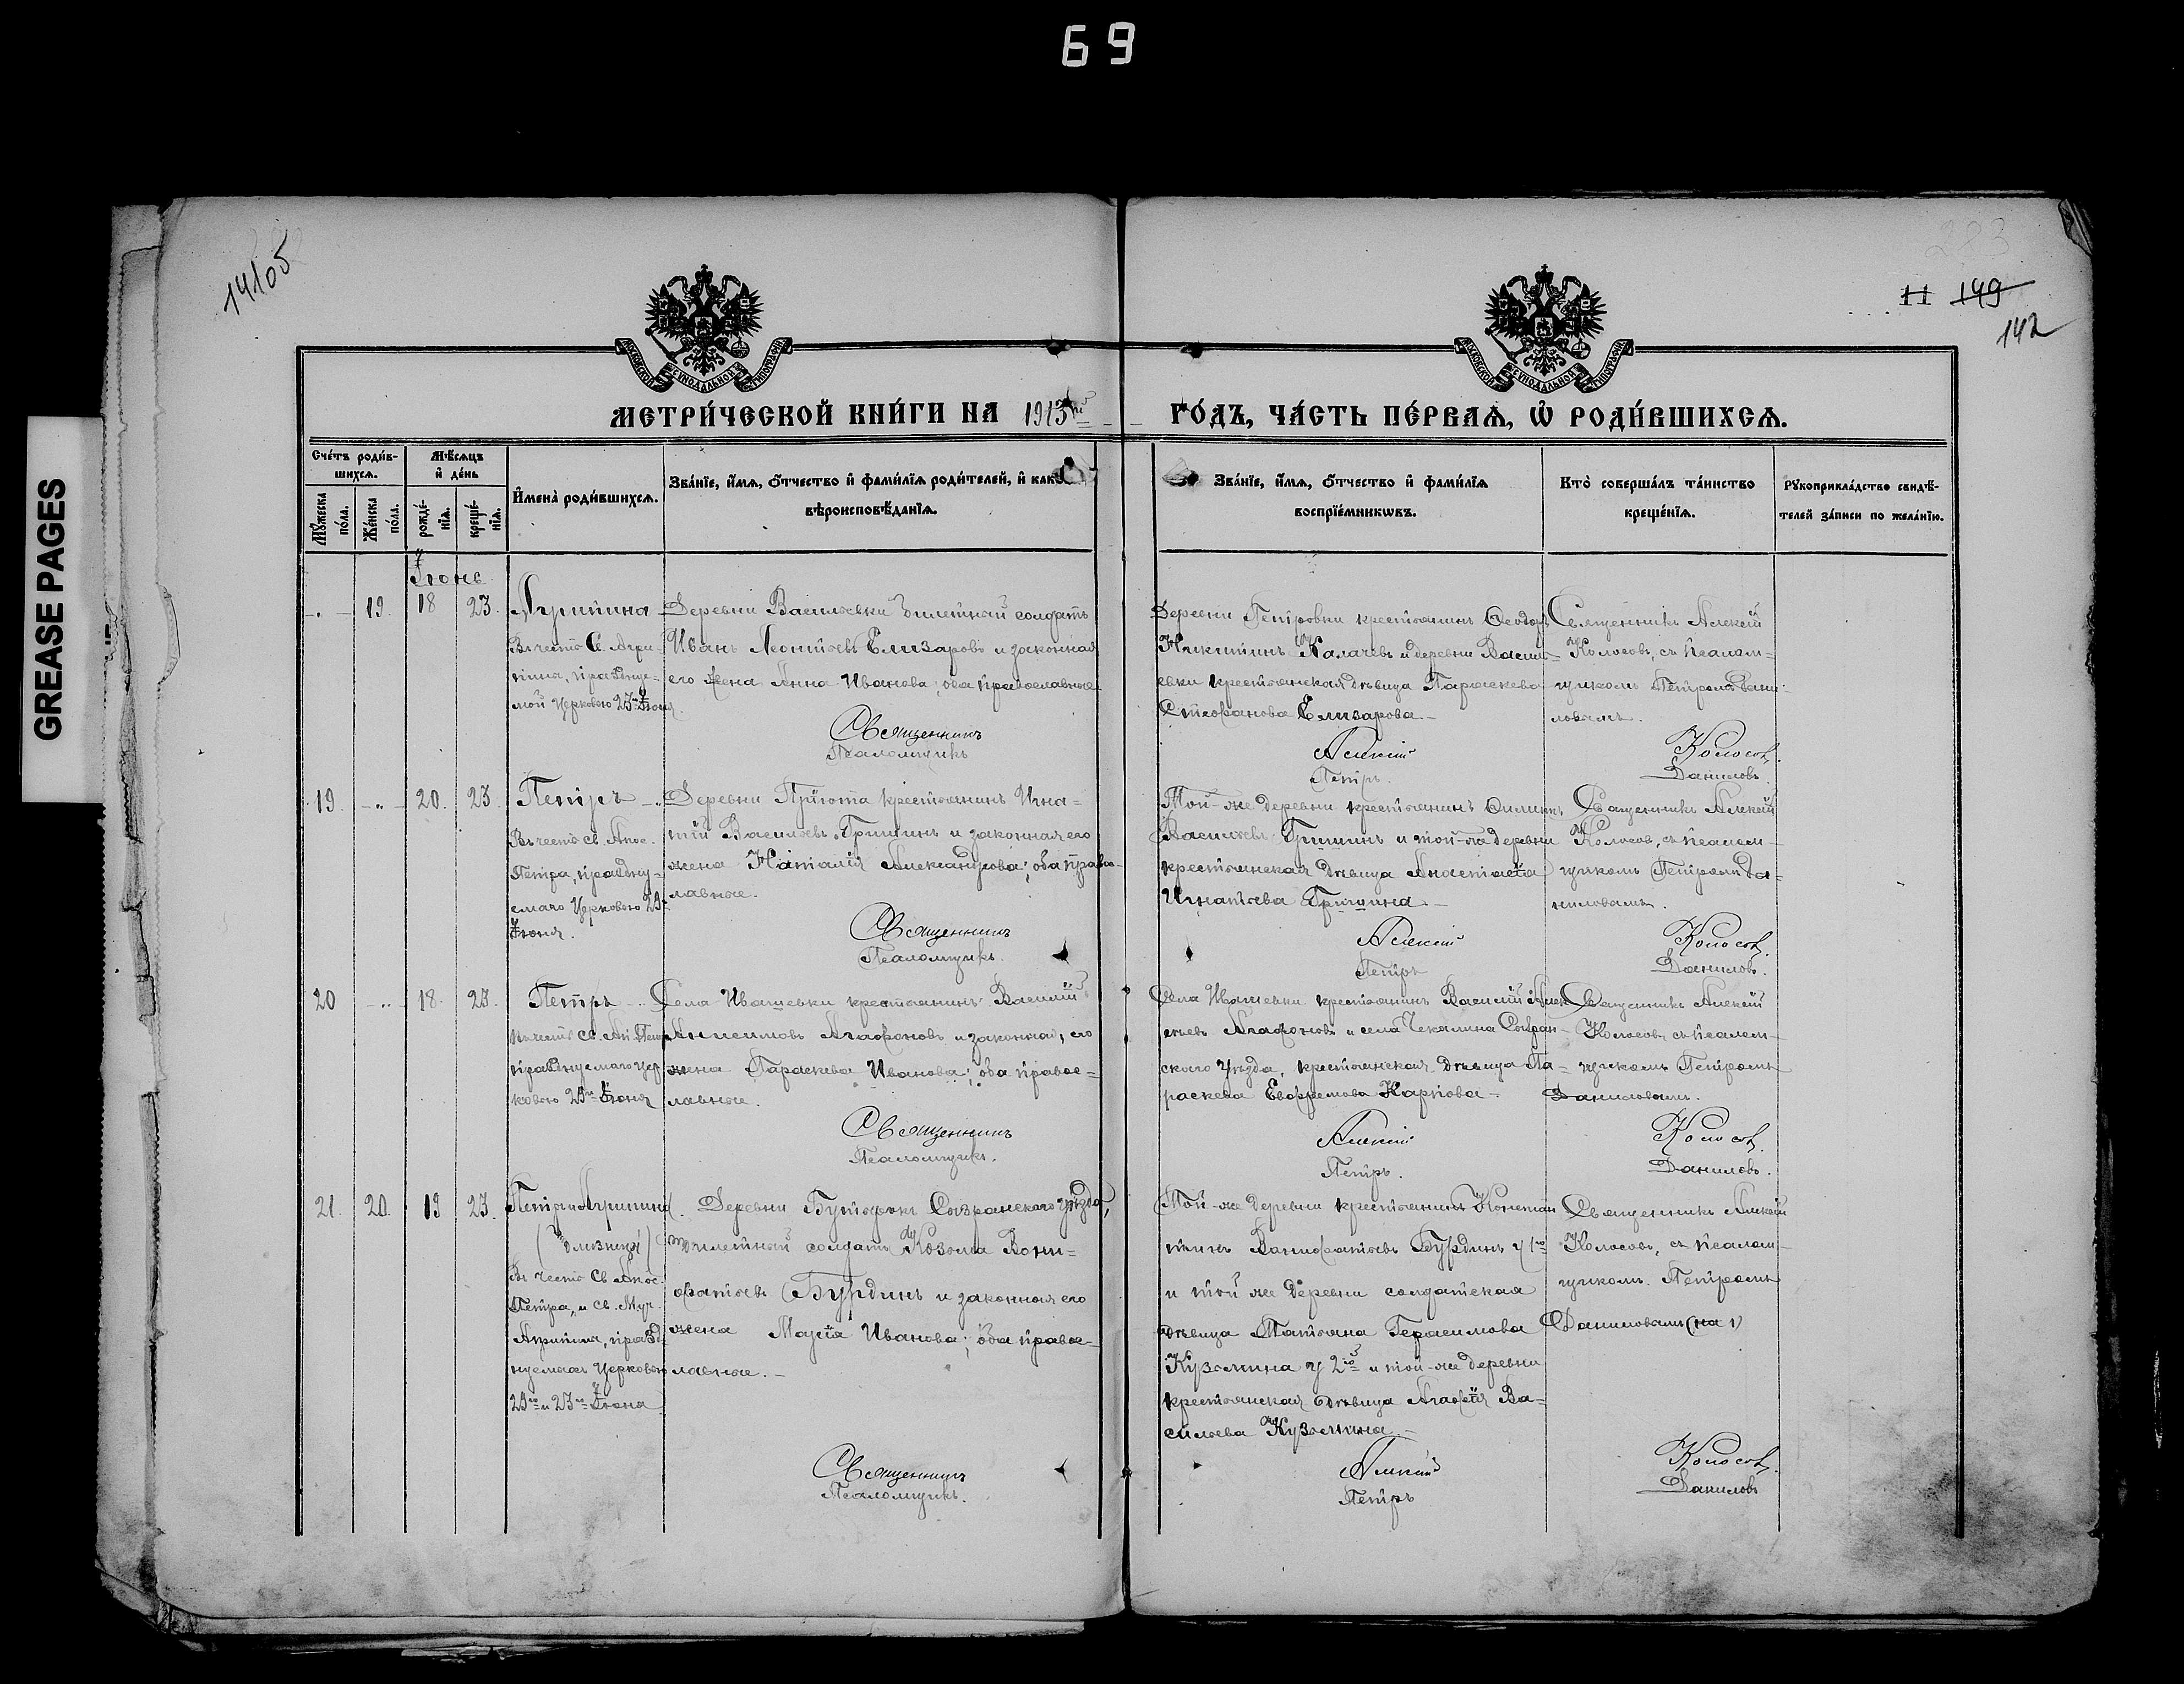 69
GREASE PAGES
14105
283
11 149
142
МОСКОВСКОЙ СѴНОДАЛЬНОЙ ТИПОГРАФІИ
МОСКОВСКОЙ СѴНОДАЛЬНОЙ ТИПОГРАФІИ
МЕТРИ́ЧЕСКОЙ КНИ́ГИ НА 1913й
ГО́ДЪ, ЧА́СТЬ ПЕ́РВАѦ, Ѡ҆ РОДИ́ВШИХСѦ.
Сче́тъ роди́в-
шихсѧ.
Мꙋ́жеска по́ла.
Же́нска по́ла.
Мѣ́сѧцъ
и҆ де́нь
рожде́-
нїѧ.
креще́-
нїѧ.
И҆мена̀ роди́вшихсѧ.
Зва́нїе, и҆́мѧ, ѻ҆́тчество и҆ фами́лїѧ роди́телей, и҆ како́гѡ
вѣроисповѣ́данїѧ.
Зва́нїе, и҆́мѧ, ѻ҆́тчество и҆ фами́лїѧ
воспрїе́мникѡвъ.
Кто̀ соверша́лъ та́инство
креще́нїѧ.
Рꙋкоприкла́дство свидѣ́-
телей за́писи по жела́нїю.
Іюнь
19. 18 23.
Агрипина
Въ честь Св. Агри-
пины, праздну-
мой Церковью 23го Іюня.
Деревни Васильевки билетный солдатъ
Иванъ Леонтьевъ Елизаровъ и законная
его жена Анна Иванова; оба православные.
Священникъ
Псаломщикъ
Деревни Петровки крестьянинъ Ѳеодоръ
Никитинъ Калачевъ и деревни Василь-
евки крестьянская дѣвица Параскева
Стефанова Елизарова.
Алексій
Петръ.
Священникъ Алексій
Колосовъ, съ псалом-
щикомъ Петромъ Дани-
ловымъ.
Колосовъ.
Даниловъ.
19. 20. 23.
Петръ
Въ честь св. Апос.
Петра, праздну-
емаго Церковью 29го
Іюня.
Деревни Пріюта крестьянинъ Игна-
тій Васильевъ Гришинъ и законная его
жена Наталія Александрова; оба право-
славные.
Священникъ
Псаломщикъ.
Той-же деревни крестьянинъ Филипъ
Васильевъ Гришинъ и той-же деревни
крестьянская дѣвица Анастасія
Игнатьева Гришина.
Алексій
Петръ
Священникъ Алексій
Колосовъ, съ псалом-
щикомъ Петромъ Да-
ниловымъ.
Колосовъ.
Даниловъ.
20 18. 23.
Петръ
Въ честь Св. Ап. Петра
празднуемаго Цер-
ковью 29го Іюня
Села Ивашевки крестьянинъ Василій
Анисимовъ Агафоновъ и законная, его
жена Параскева Иванова; оба правос-
лавные.
Священникъ
Псаломщикъ.
Села Ивашевки крестьянинъ Василій Алек-
сѣевъ Агафоновъ и села Чекалина Сызран-
скаго уѣзда, крестьянская дѣвица Па-
раскева Евфремова Карпова.
Алексій
Петръ.
Священникъ Алексій
Колосовъ съ псалом-
щикомъ Петромъ
Даниловымъ.
Колосовъ.
Даниловъ.
21. 20. 19 23.
Петръ и Агрипина
(близнецы)
Въ честь Св. Апос.
Петра, и св. Муч.
Агрипины, празд-
нуемыхъ Церковью
29го и 23го Іюня
Деревни Бутырокъ Сызранскаго уѣзда,
билетный солдатъ Козьма Вони-
фатьевъ Бурдинъ и законная его
жена Марія Иванова; оба правос-
лавные.
Священникъ
Псаломщикъ.
Той-же деревни крестьянинъ Констан-
тинъ Вонифатьевъ Бурдинъ у 1го
и той же деревни солдатская
дѣвица Татьяна Герасимова
Кузьмина у 2го и той-же деревни
крестьянская дѣвица Агафія Ва-
сильева Кузьмина.
Алексій
Петръ
Священникъ Алексій
Колосовъ, съ псалом-
щикомъ Петромъ
Даниловымъ
Колосовъ.
Даниловъ